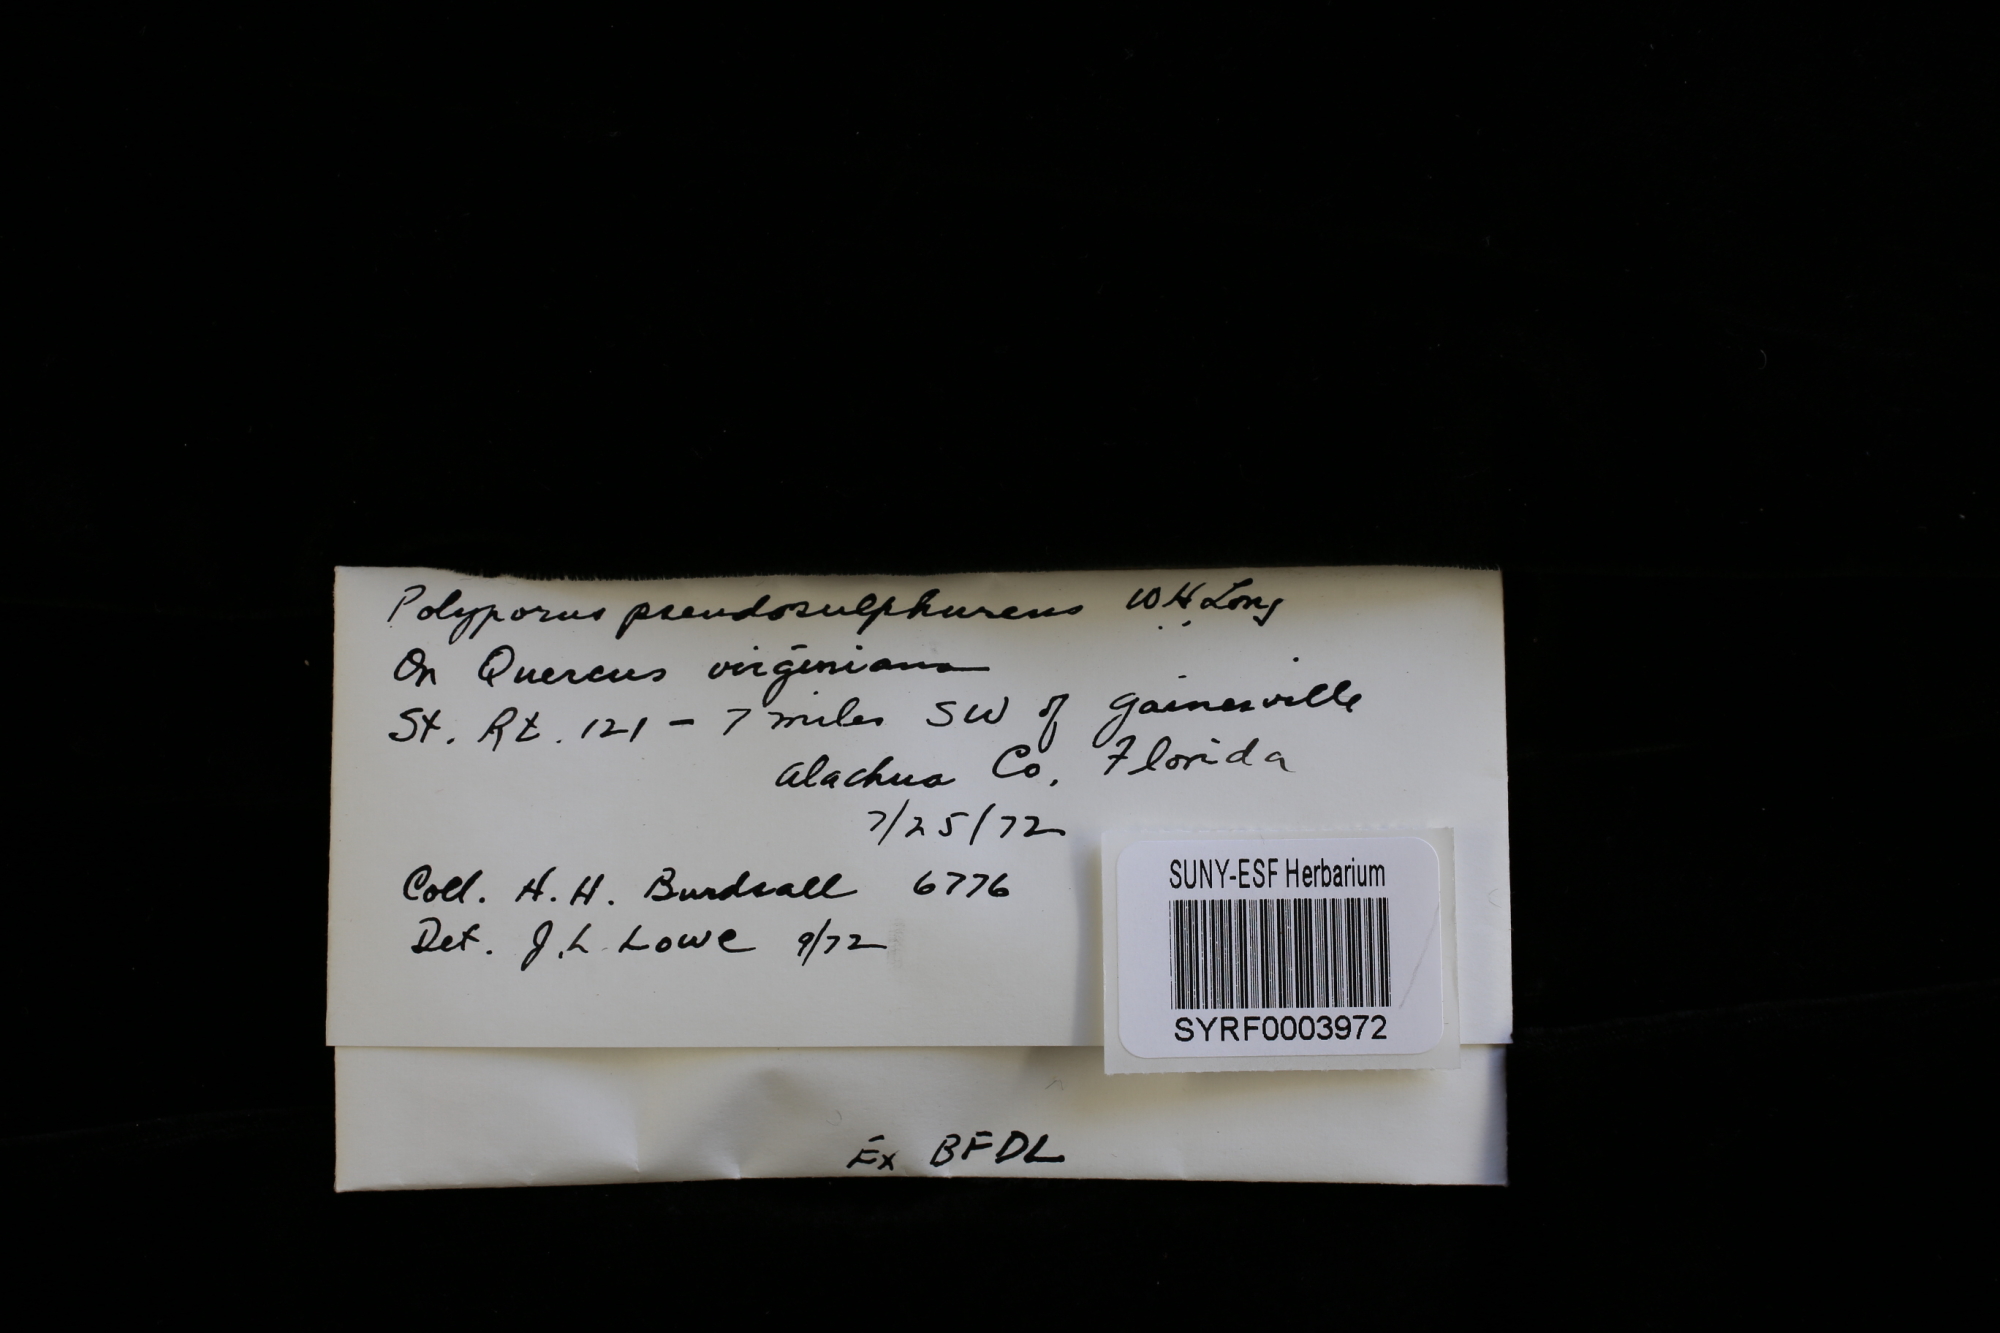 Polyporus pseudosulphureus W.H. Long
On Quercus virginiana
St. Rt. 121 - 7 miles SW of Gainesville
Alachua Co. Florida
7/25/72
Coll. H. H. Burdsall 6776
Det. J. L. Lowe 9/72
SUNY-ESF Herbarium
SYRF0003972
Ex BFDL